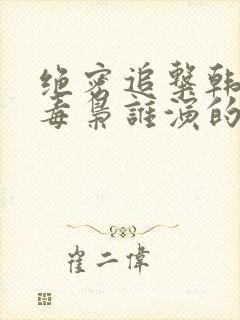 绝密追击韩
毒枭誰演的
崔二偉